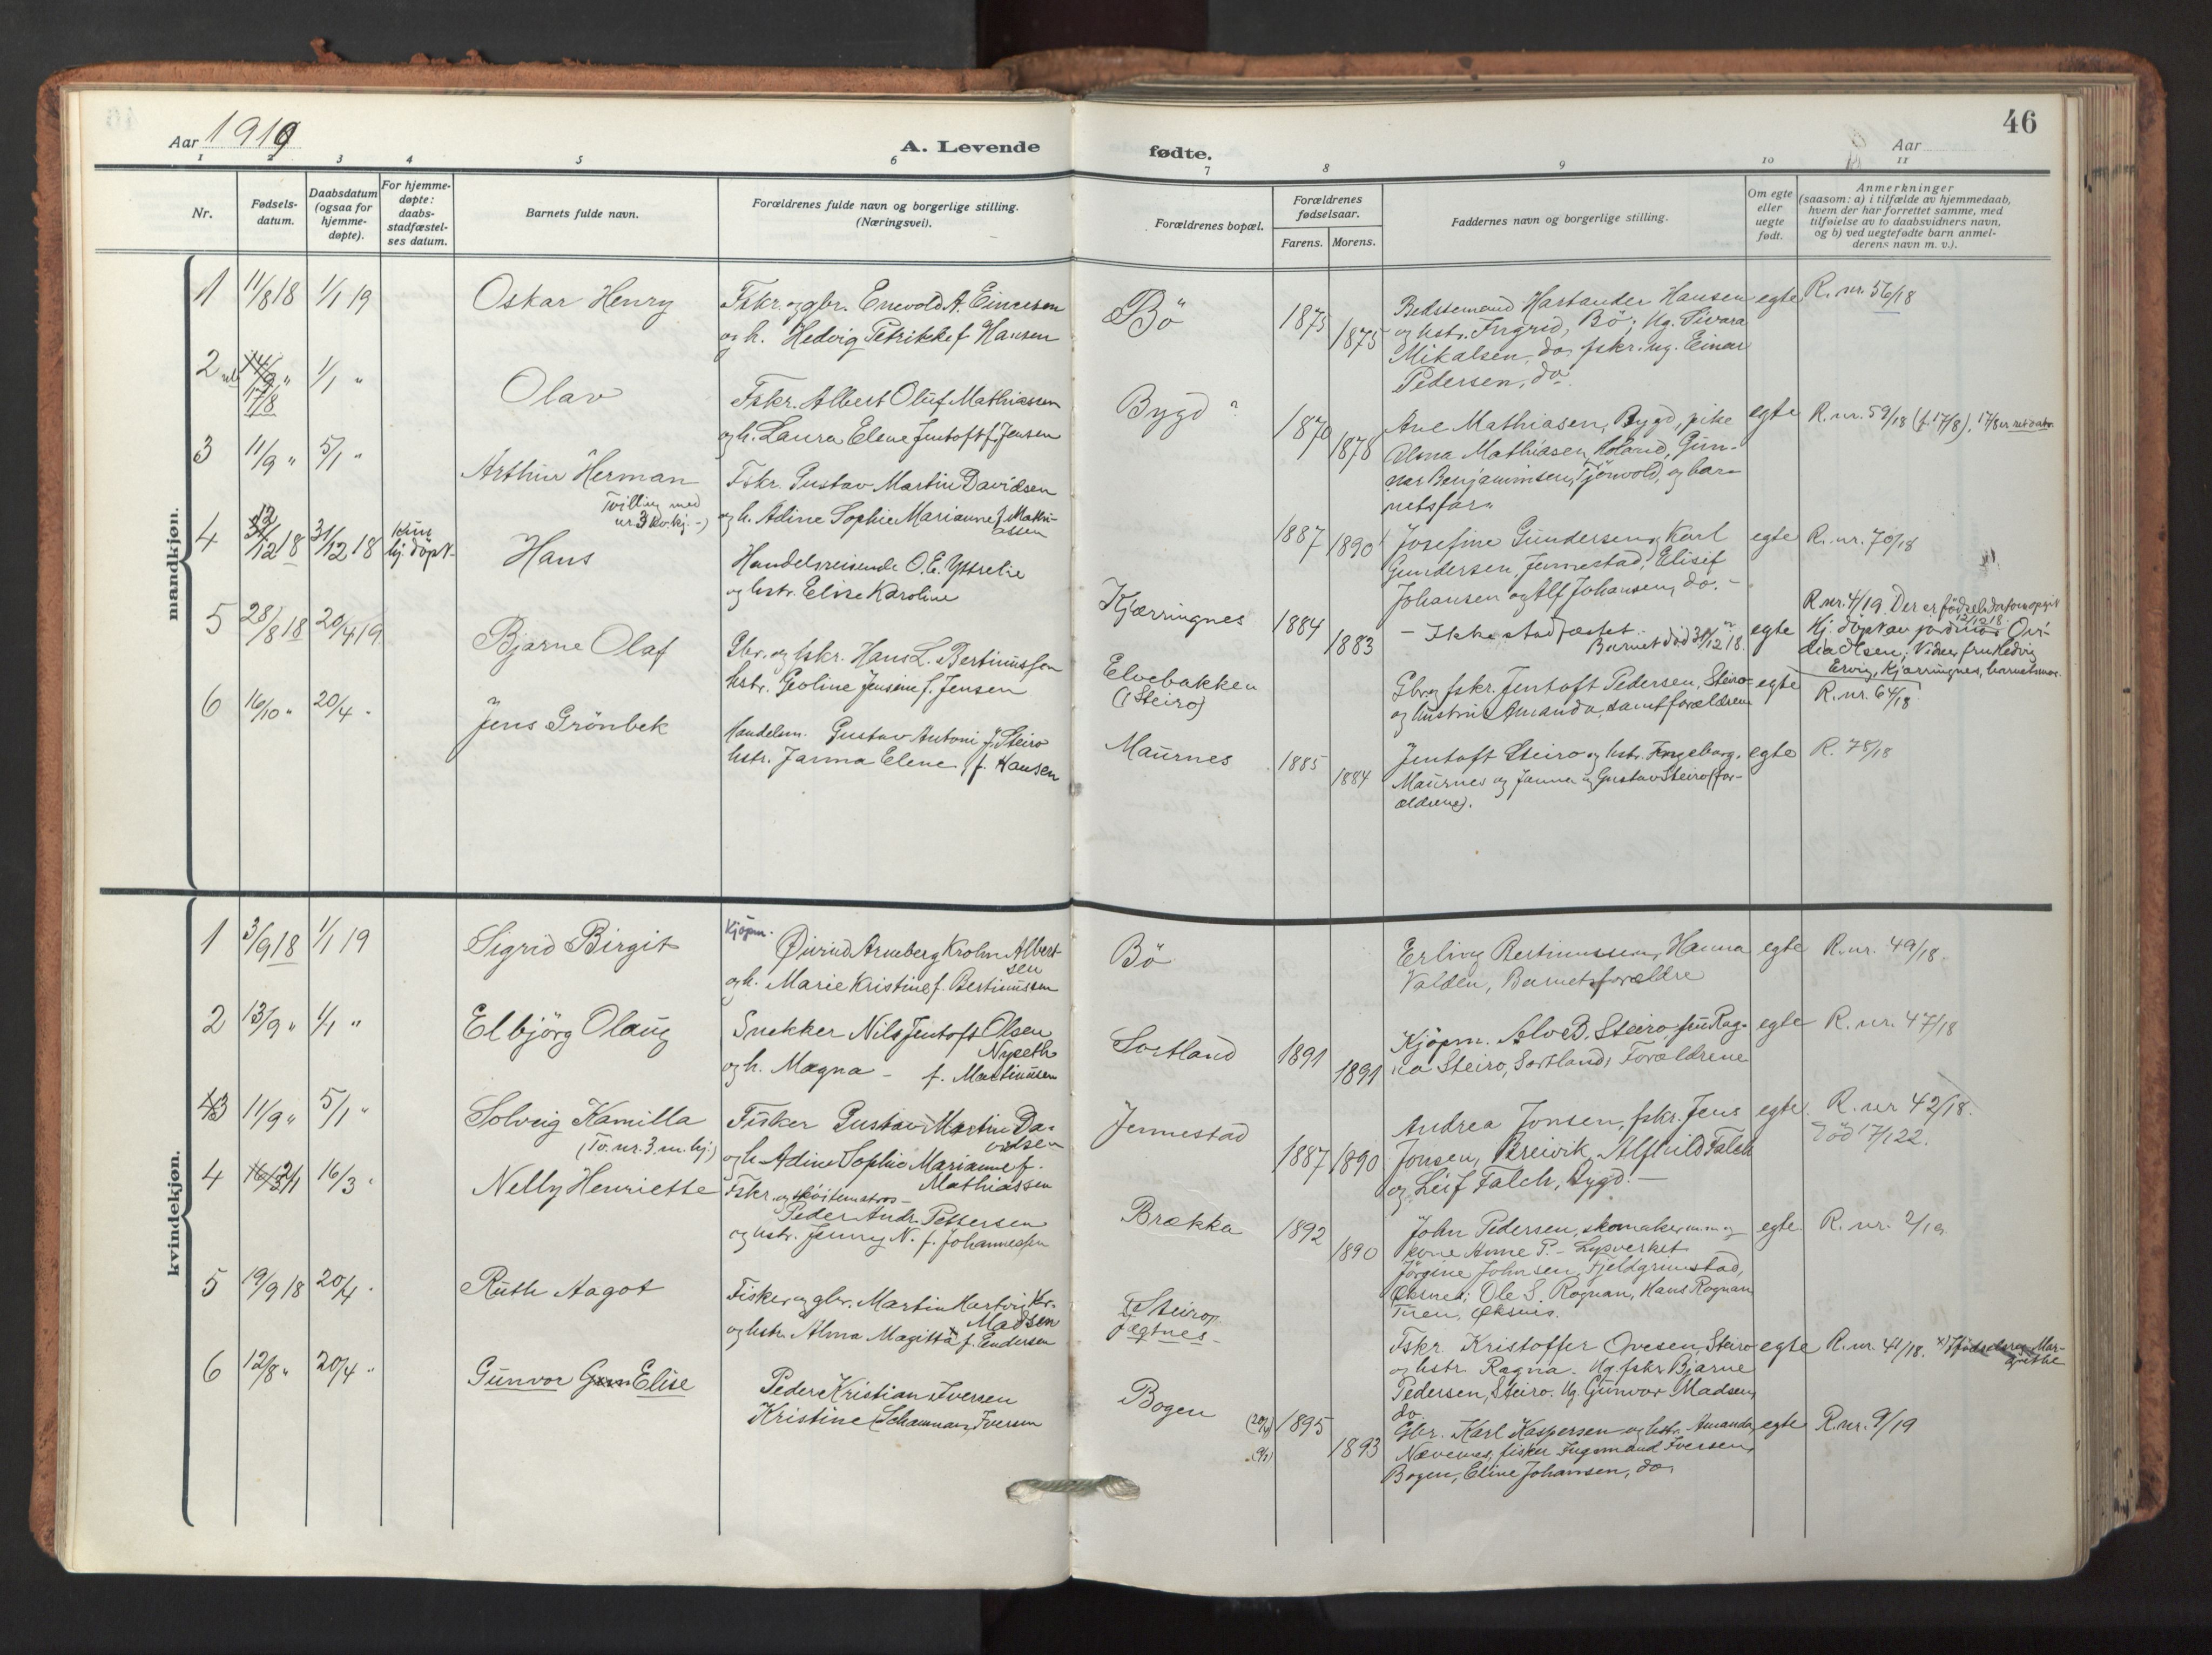 Aar 1919
A. Levende
fødte.
46
Aar
1 2 3 4 5 6 7 8 9 10 11
Nr.
Fødsels-
datum.
Daabsdatum
(ogsaa for
hjemme-
døpte).
For hjemme-
døpte:
daabs-
stadfæstel-
ses datum.
Barnets fulde navn.
Forældrenes fulde navn og borgerlige stilling.
(Næringsvei).
Forældrenes bopæl.
Forældrenes
fødselsaar.
Farens. Morens.
Faddernes navn og borgerlige stilling.
Om egte
eller
uegte
født.
Anmerkninger
(saasom: a) i tilfælde av hjemmedaab,
hvem der har forrettet samme, med
tilføielse av to daabsvidners navn,
og b) ved uegtefødte barn anmel-
derens navn m. v.).
mandkjøn.
1 11/8 18 1/1 19
Oskar Henry
Fskr. og gbr. Enevold A. Einersen
og h. Hedvig Petrikke f. Hansen
Bö
1875 1875
Bedstemand Hartander Hansen
og hstr. Ingrid, Bö; Ug. Sivara
Mikalsen, do, fskr. ug. Einar
Pedersen, do.
egte
R. nr. 56/18
2 14/9 " 17/8 1/1 "
Olav
Fskr. Albert Oluf Mathiassen
og h. Laura Elene Jentoft f. Jensen
Bygd ?
1870 1878
Ane Mathiasen, Bygd, pike
Alma Mathiasen, Holand, Gun-
nar Benjaminsen, Tjönvold, og bar-
netsfar.
egte
R. nr. 59/18 (f. 17/8), 17/8 er ret dato.
3 11/9 " 5/1 "
Arthur Herman
Tvilling med
nr 3 kv.kj. -)
Fskr. Gustav Martin Davidsen
og h. Adine Sophie Marianne f. Mathi-
assen
1887 1890
Josefine Gundersen, Karl
Gundersen, Jennestad, Elisif
Johansen og Alf Johansen, do. -
egte
R. nr. 70/18
4 12/12 18 31/12 18 kun
hj. döpt
Hans
Handelsreisende O. E. Yttrelie
og hstr. Elise Karoline
Kjærringnes
1884 1883
- Ikke stadfæstet.
Barnet död 31/12 18.
egte
R. nr. 4/19. Der er födselsdatum opgit
12/12 18.
Hj. döpt av jordmor Ovi-
dia Olsen; Vidner fru Hedvig
Ervig, Kjærringnes, barnets mor.
5 28/8 18 20/4 19
Bjarne Olaf
Gbr. og fskr. Hans L. Bertinussen
hstr. Geoline Jensine f. Jensen
Elvebakken
(Steiro)
Gbr. og fskr. Jentoft Pedersen, Steiro
og hustru Amanda, samt forældrene
egte
R. nr. 64/18
6 16/10 " 20/4 "
Jens Grönbek
Handelsm. Gustav Antoni J. Steiro
hstr. Janna Elene f. Hansen
Maurnes
1885 1884
Jentoft Steiro og hstr. Ingeborg,
Maurnes og Janna og Gustav Steiro (for-
ældrene).
egte
R. 78/18
kvindekjøn.
1 3/9 18 1/1 19
Sigrid Birgit
Kjöpm.
Öivind Arneberg Krohn Albert-
sen
og h. Marie Kristine f. Bertinussen
Bö
Erling Bertinussen, Hanna
Valden, Barnets forældre
egte
R. nr. 49/18.
2 13/9 " 1/1 "
Elbjörg Olaug
Snekker Nils Jentoft Olsen
Nyseth
og h. Magna - f. Martinussen
Sortland
1891 1891
Kjöpm. Alv B. Steiro, fru Rag-
na Steiro, Sortland, Forældrene
egte
R. nr. 47/18
3 11/9 " 5/1 "
Solveig Kamilla
(Tv. nr. 3. m. kj.)
Fisker Gustav Martin Da-
vidsen
og h. Adine Sophie Marianne f.
Mathiassen
Jennestad
1887 1890
Andrea Jonsen, fskr. Jens
Jonsen, Breivik, Alfhild Falch
og Leif Falch, Bygd. -
egte
R. nr 42/18.
Död 17/1 22.
4 2/1 16/3 "
Nelly Henriette
Fskr. og skøitematros -
Peder Andr. Pettersen
og hstr. Jenny N. f. Johannessen
Brækka
1892 1890
John Pedersen, skomaker m.m. og
kone Anne P. - Lysverket
Jörgine Johnsen, Fjeldgrimstad,
Öksnes; Ole S. Rognan, Hans Rognan
Tuen, Öksnes.
egte
R. nr. 2/19
5 19/9 18 20/4 "
Ruth Aagot
Fisker og gbr. Martin Hartvig Kr.
Madsen
og hstr. Alma Magitta f. Endersen
Steiro,
Jægtnes -
Fskr. Kristoffer Ovesen, Steiro
og hstr. Ragna. Ug. fskr. Bjarne
Pedersen, Steiro. Ug. Gunvor Madsen,
do
egte
R. nr. 41/18. x) I födselsreg. Mar-
grethe
6 12/8 " 20/4 "
Gunvor Elise
Peder Kristian Iversen
Kristine Iversen
Bogen
1895 1893
Gbr. Karl Kaspersen og hstr. Amanda,
Nævernes, fisker Ingemund Iversen,
Bogen, Eline Johansen, do.
egte
R. nr. 9/19